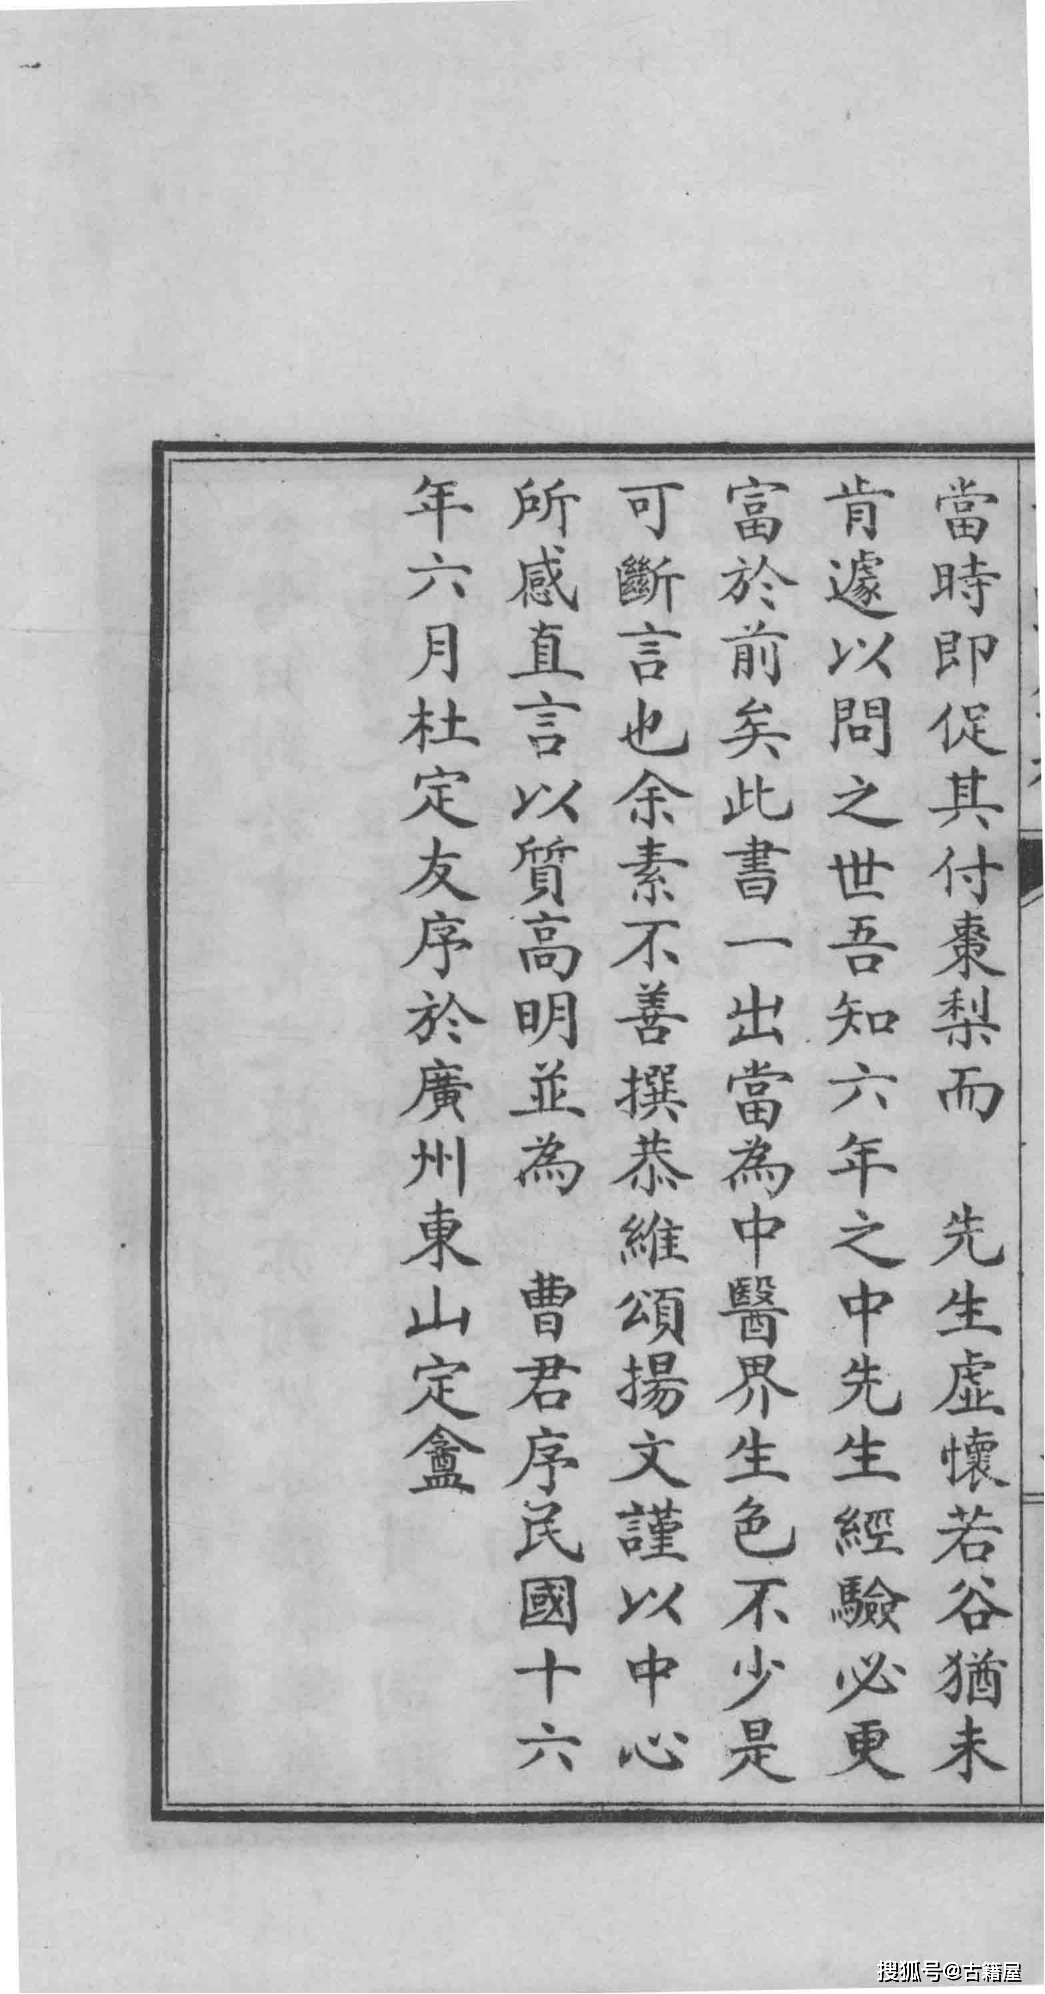 當時即促其付棗梨而　先生虛懷若谷猶未
肯遽以問之世吾知六年之中先生經驗必更
富於前矣此書一出當為中醫界生色不少是
可斷言也余素不善撰恭維頌揚文謹以中心
所感直言以質高明並為　曹君序民國十六
年六月杜定友序於廣州東山定盦
搜狐号@古籍屋